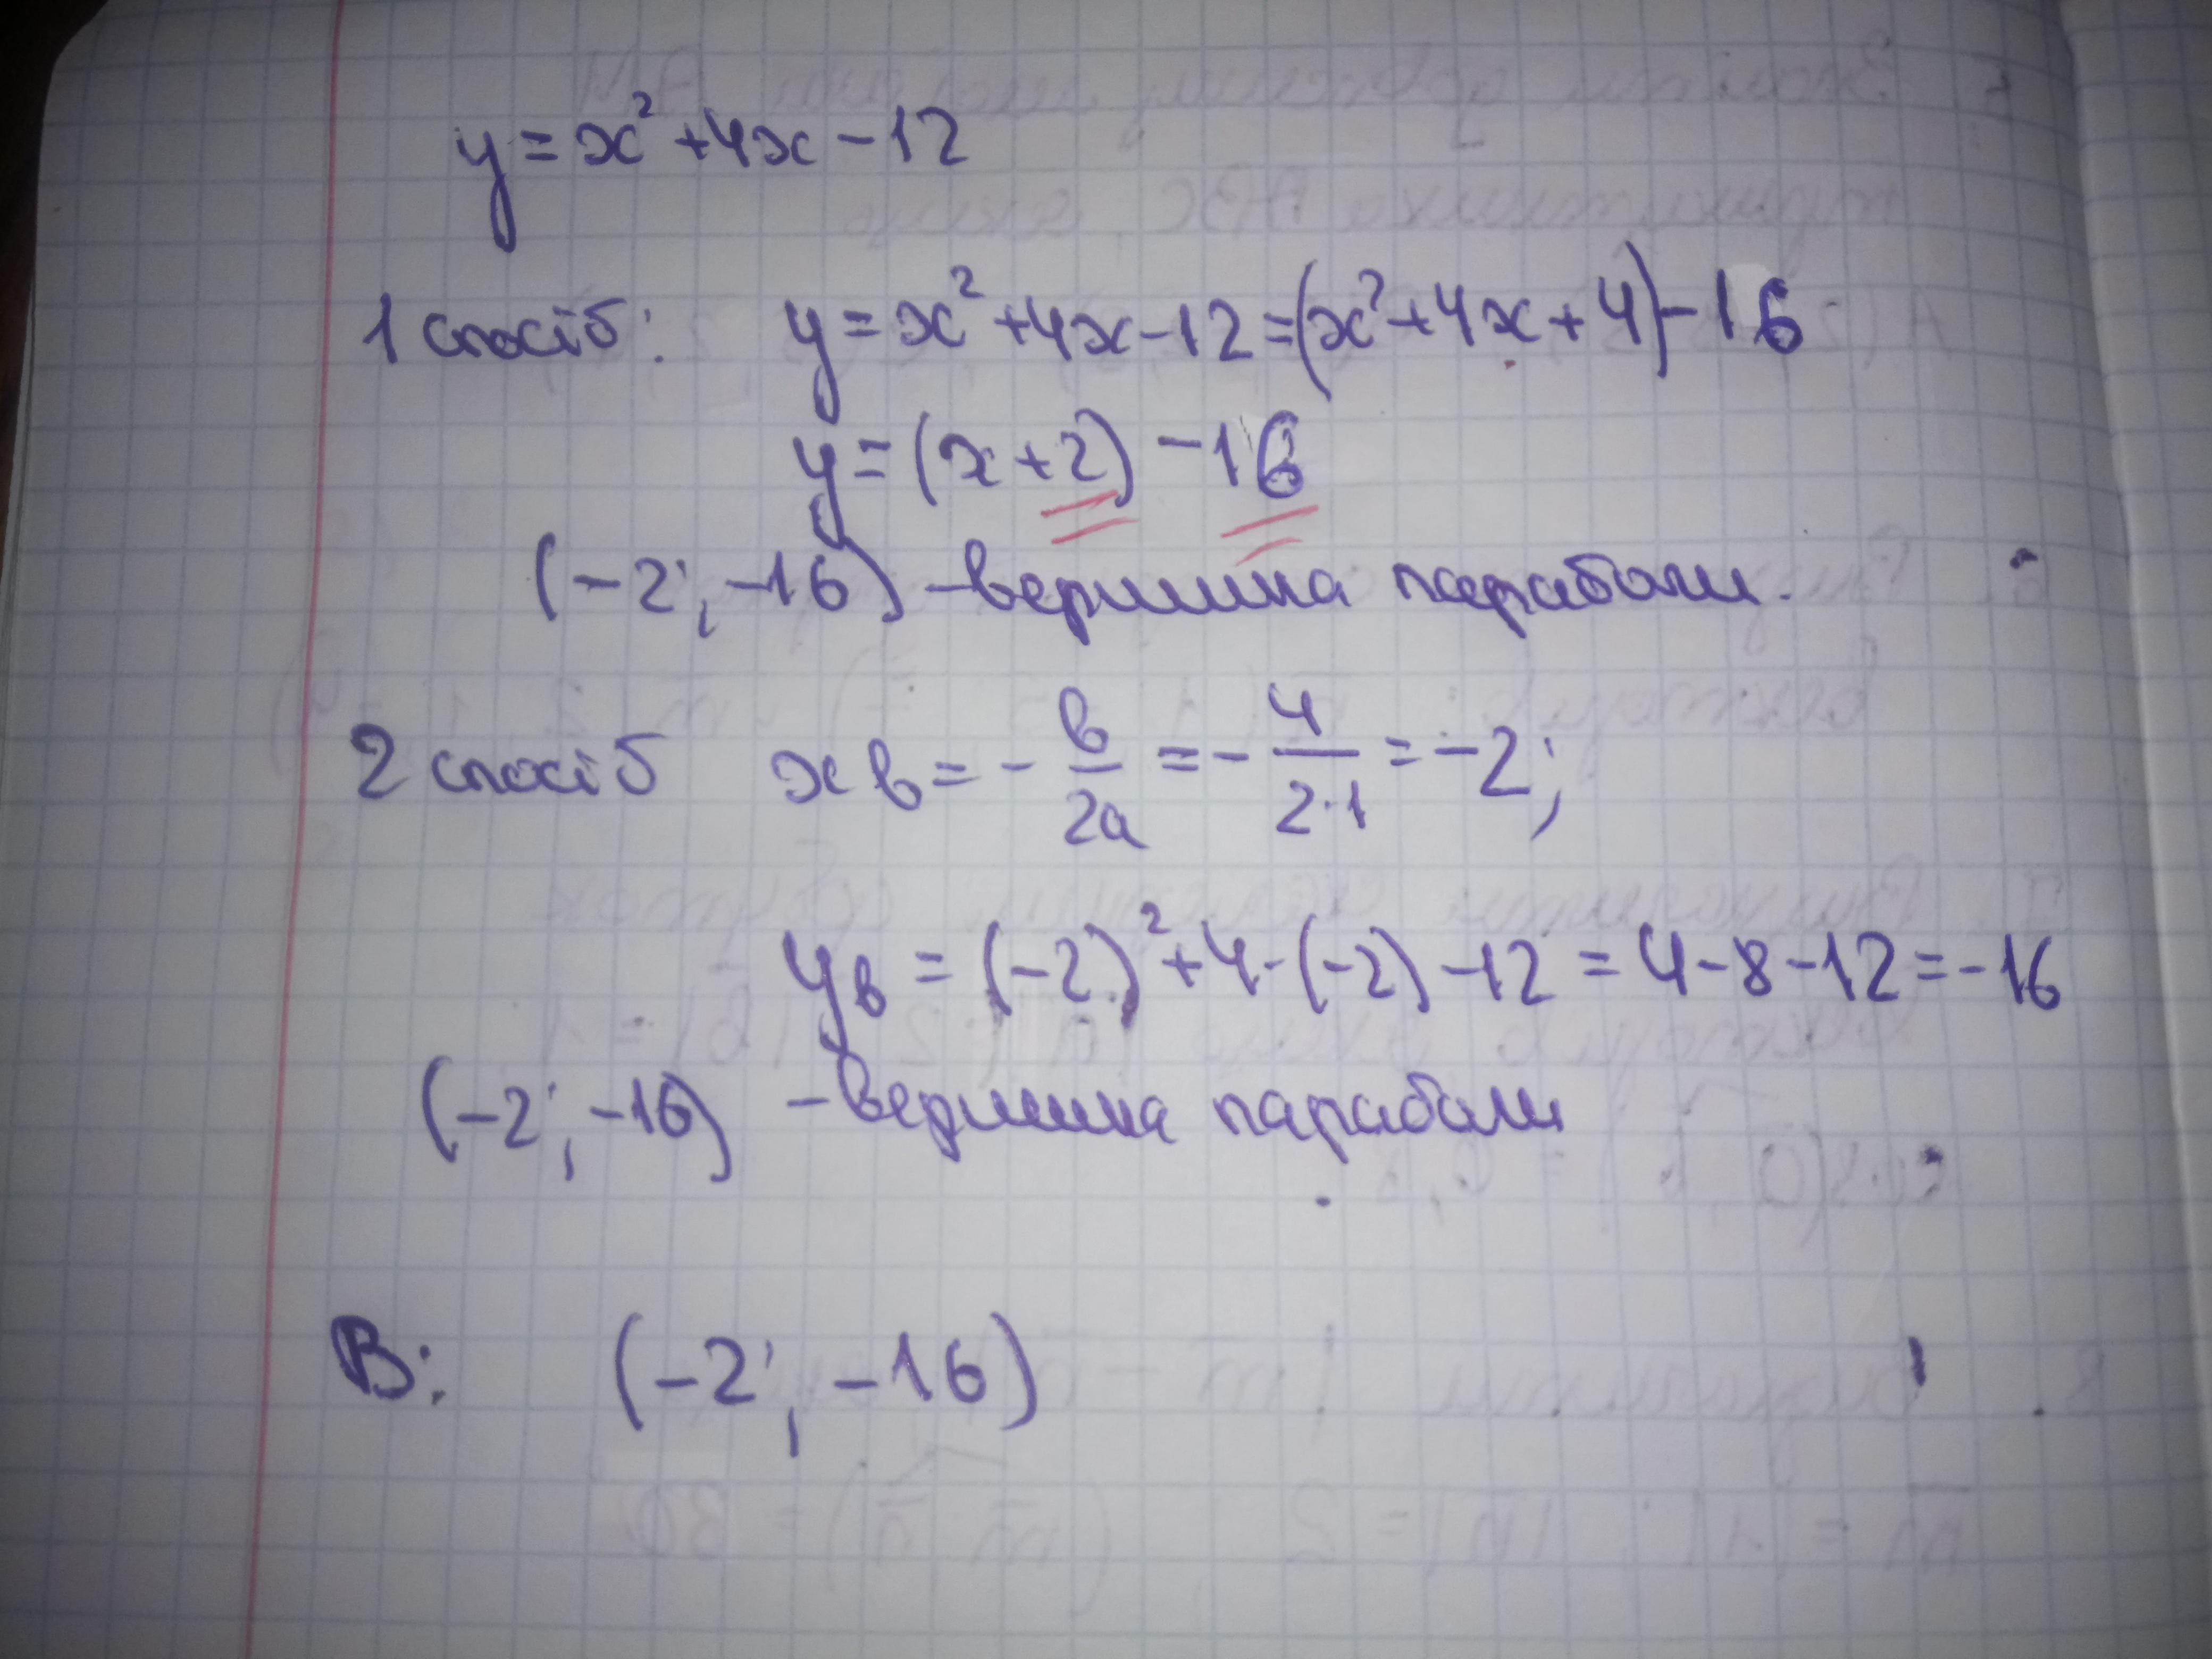 y = x² + 4x - 12
1 спосіб: y = x² + 4x - 12 = (x² + 4x + 4) - 16
y = (x + 2) - 16
(-2; -16) - вершина параболи.
2 спосіб xв = - в/2a = - 4/2·1 = -2;
yв = (-2)² + 4·(-2) - 12 = 4 - 8 - 12 = -16
(-2; -16) - вершина параболи
В: (-2; -16)